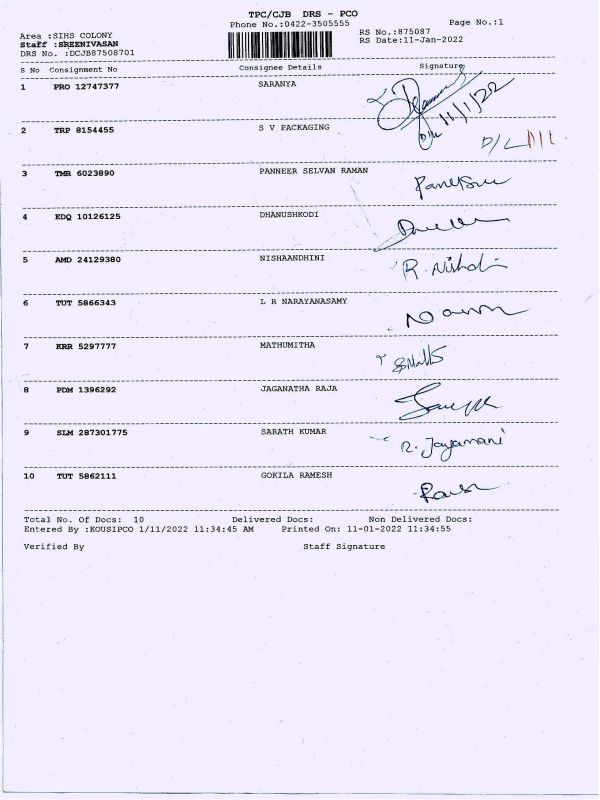 TPC/CJB DRS - PCO
Phone No.:0422-3505555 Page No.:1
Area :SIHS COLONY RS No.:875087
Staff :SREENIVASAN RS Date:11-Jan-2022
DRS No. :DCJB87508701
S No Consignment No Consignee Details Signature
1 PRO 12747377 SARANYA
11/1/22
2 TRP 8154455 S V PACKAGING D/L D/L
3 TMR 6023890 PANNEER SELVAN RAMAN
4 EDQ 10126125 DHANUSHKODI
5 AMD 24129380 NISHAANDHINI
6 TUT 5866343 L R NARAYANASAMY
7 KRR 5297777 MATHUMITHA
8 PDM 1396292 JAGANATHA RAJA
9 SLM 287301775 SARATH KUMAR R. Jayamani
10 TUT 5862111 GOKILA RAMESH
Total No. Of Docs: 10 Delivered Docs: Non Delivered Docs:
Entered By :KOUSIPCO 1/11/2022 11:34:45 AM Printed On: 11-01-2022 11:34:55
Verified By Staff Signature